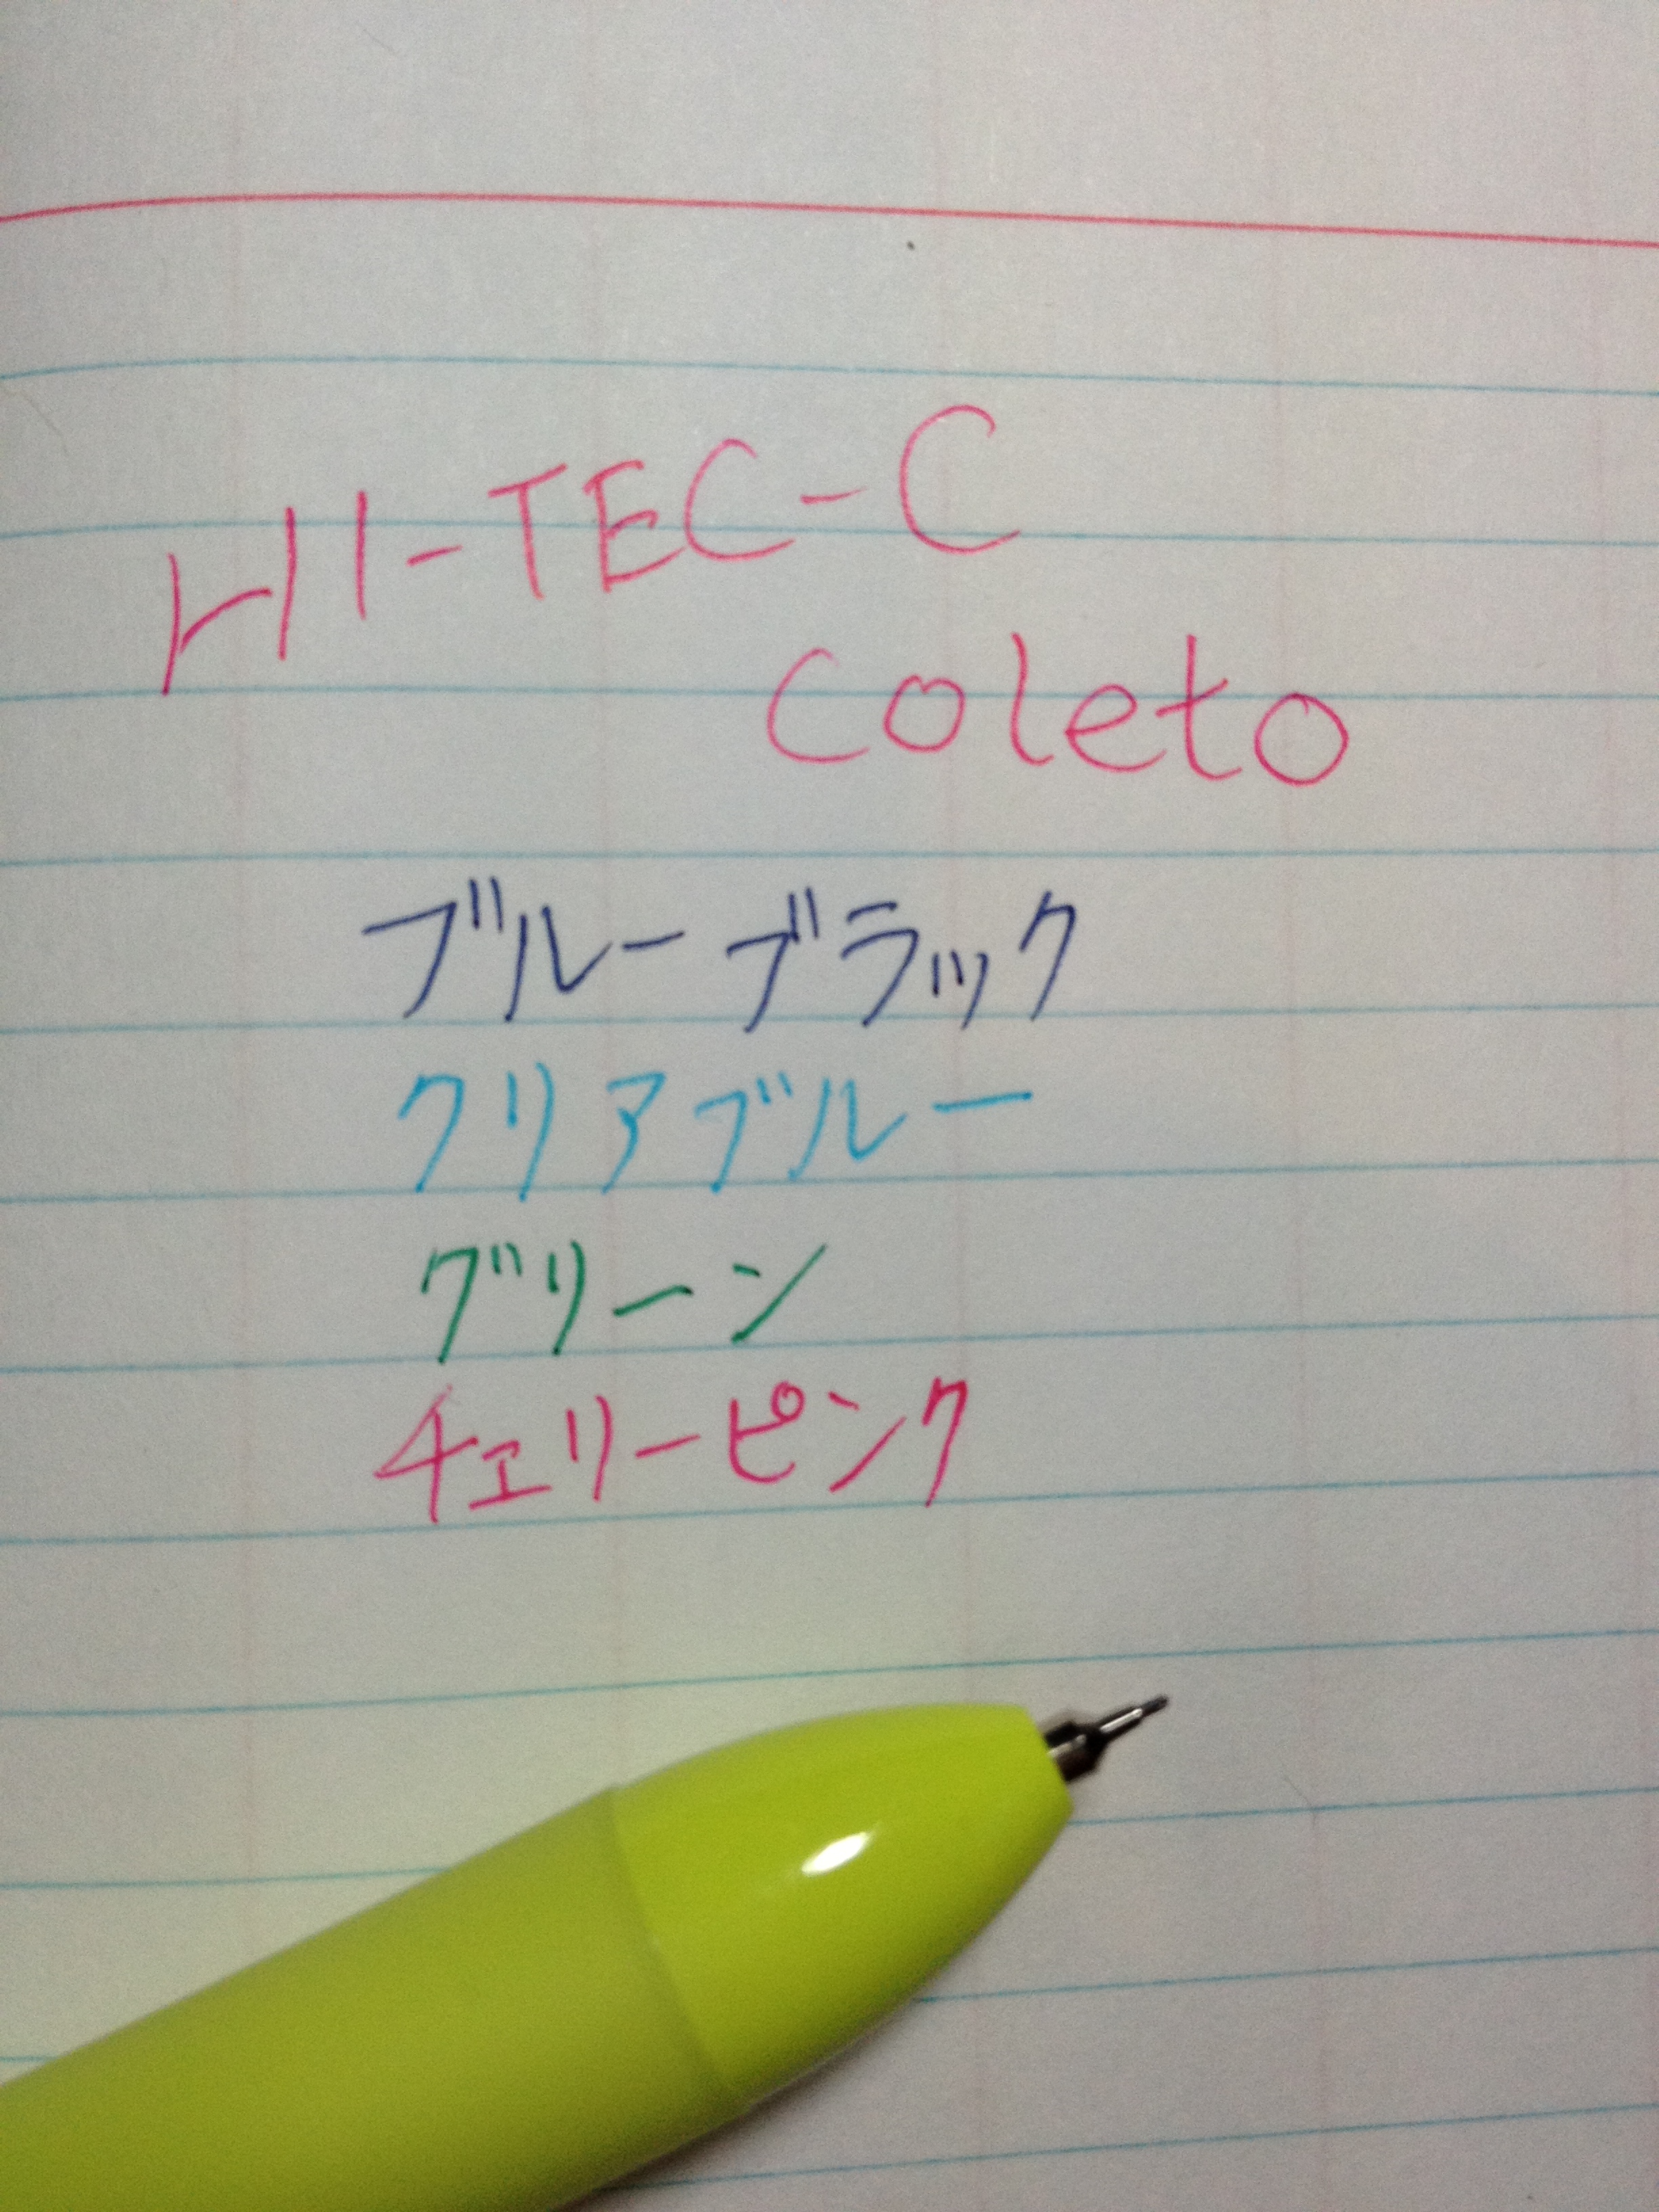 HI-TEC-C
coleto
ブルーブラック
クリアブルー
グリーン
チェリーピンク